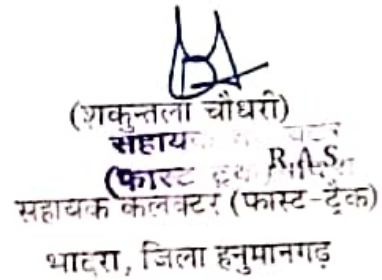 (शकुन्तला चौधरी)
सहाय
(फास्ट R.A.S.
सहायक कलक्टर (फास्ट-ट्रैक)
भादरा, जिला हनुमानगढ़